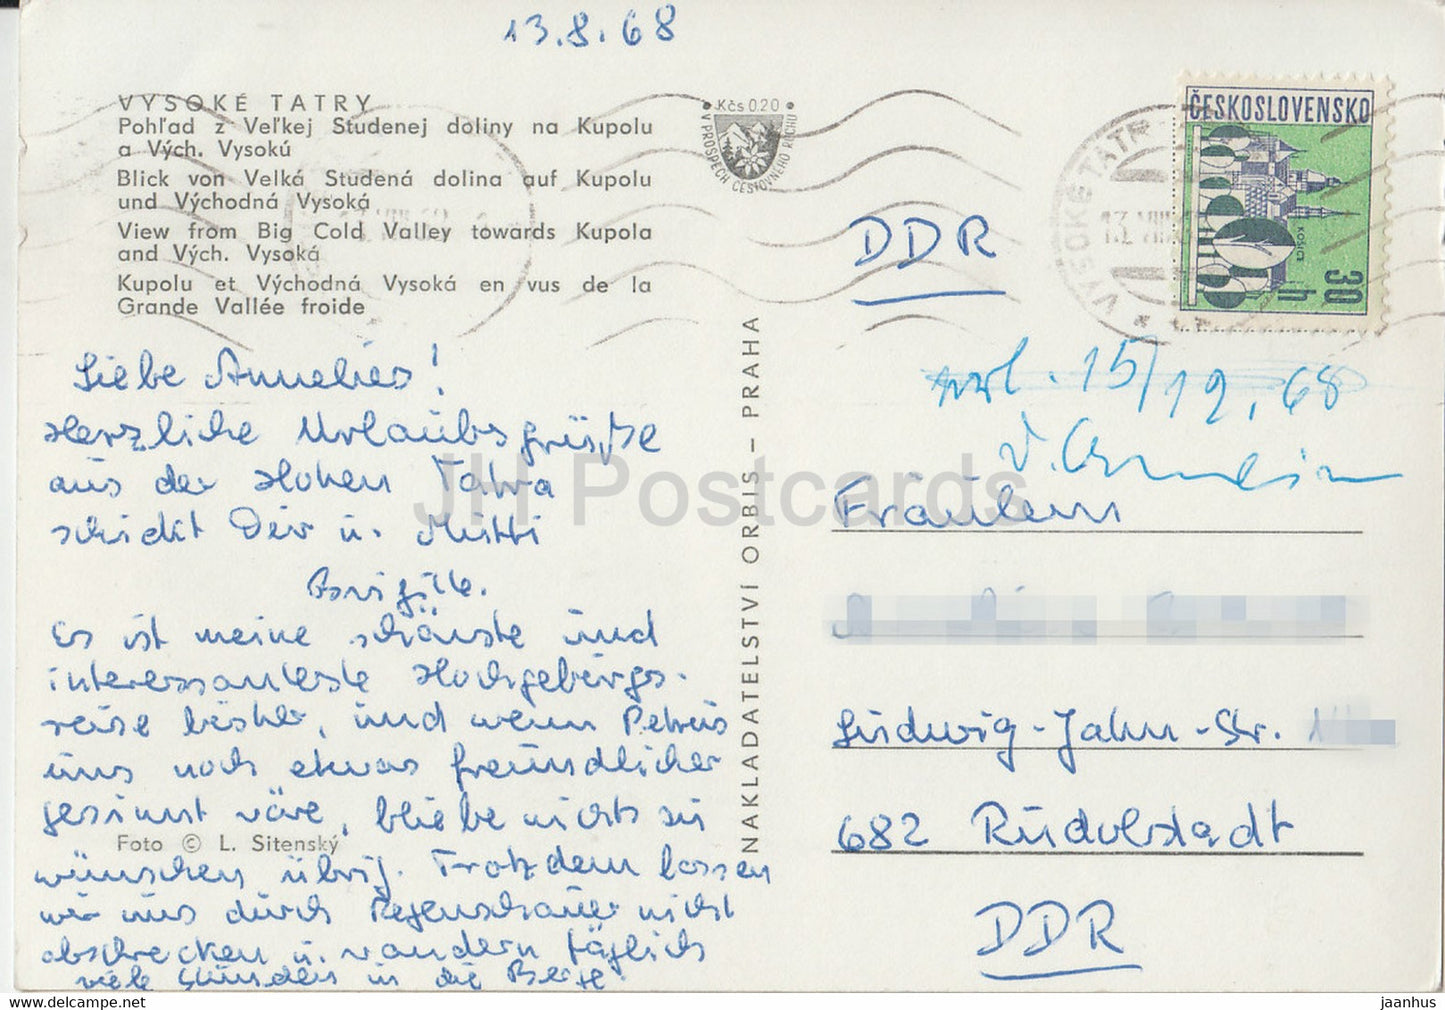 13.8.68
VYSOKÉ TATRY
Pohľad z Veľkej Studenej doliny na Kupolu
a Vých. Vysokú
Blick von Velká Studená dolina auf Kupolu
und Východná Vysoká
View from Big Cold Valley towards Kupola
and Vých. Vysoká
Kupolu et Východná Vysoká en vus de la
Grande Vallée froide
Kčs 0.20
V PROSPECH CESTOVNÉHO RUCHU
VYSOKÉ TATRY
13. VIII.
ČESKOSLOVENSKO
KOŠICE
30 h
DDR
Liebe Annelies!
Herzliche Urlaubsgrüße
aus der Hohen Tatra
schickt Dir u. Mutti
Brigitte.
Es ist meine schönste und
interessanteste Hochgebirgs-
reise bisher, und wenn Petrus
uns noch etwas freundlicher
gesinnt wäre, bliebe nichts zu
wünschen übrig. Trotzdem lassen
wir uns durch Regenschauer nicht
abschrecken u. wandern täglich
viele Stunden in die Berge.
Foto © L. Sitenský
NAKLADATELSTVÍ ORBIS – PRAHA
15/12.68
Fräulein
Ludwig-Jahn-Str.
682 Rudolstadt
DDR
JH Postcards
jaanhus